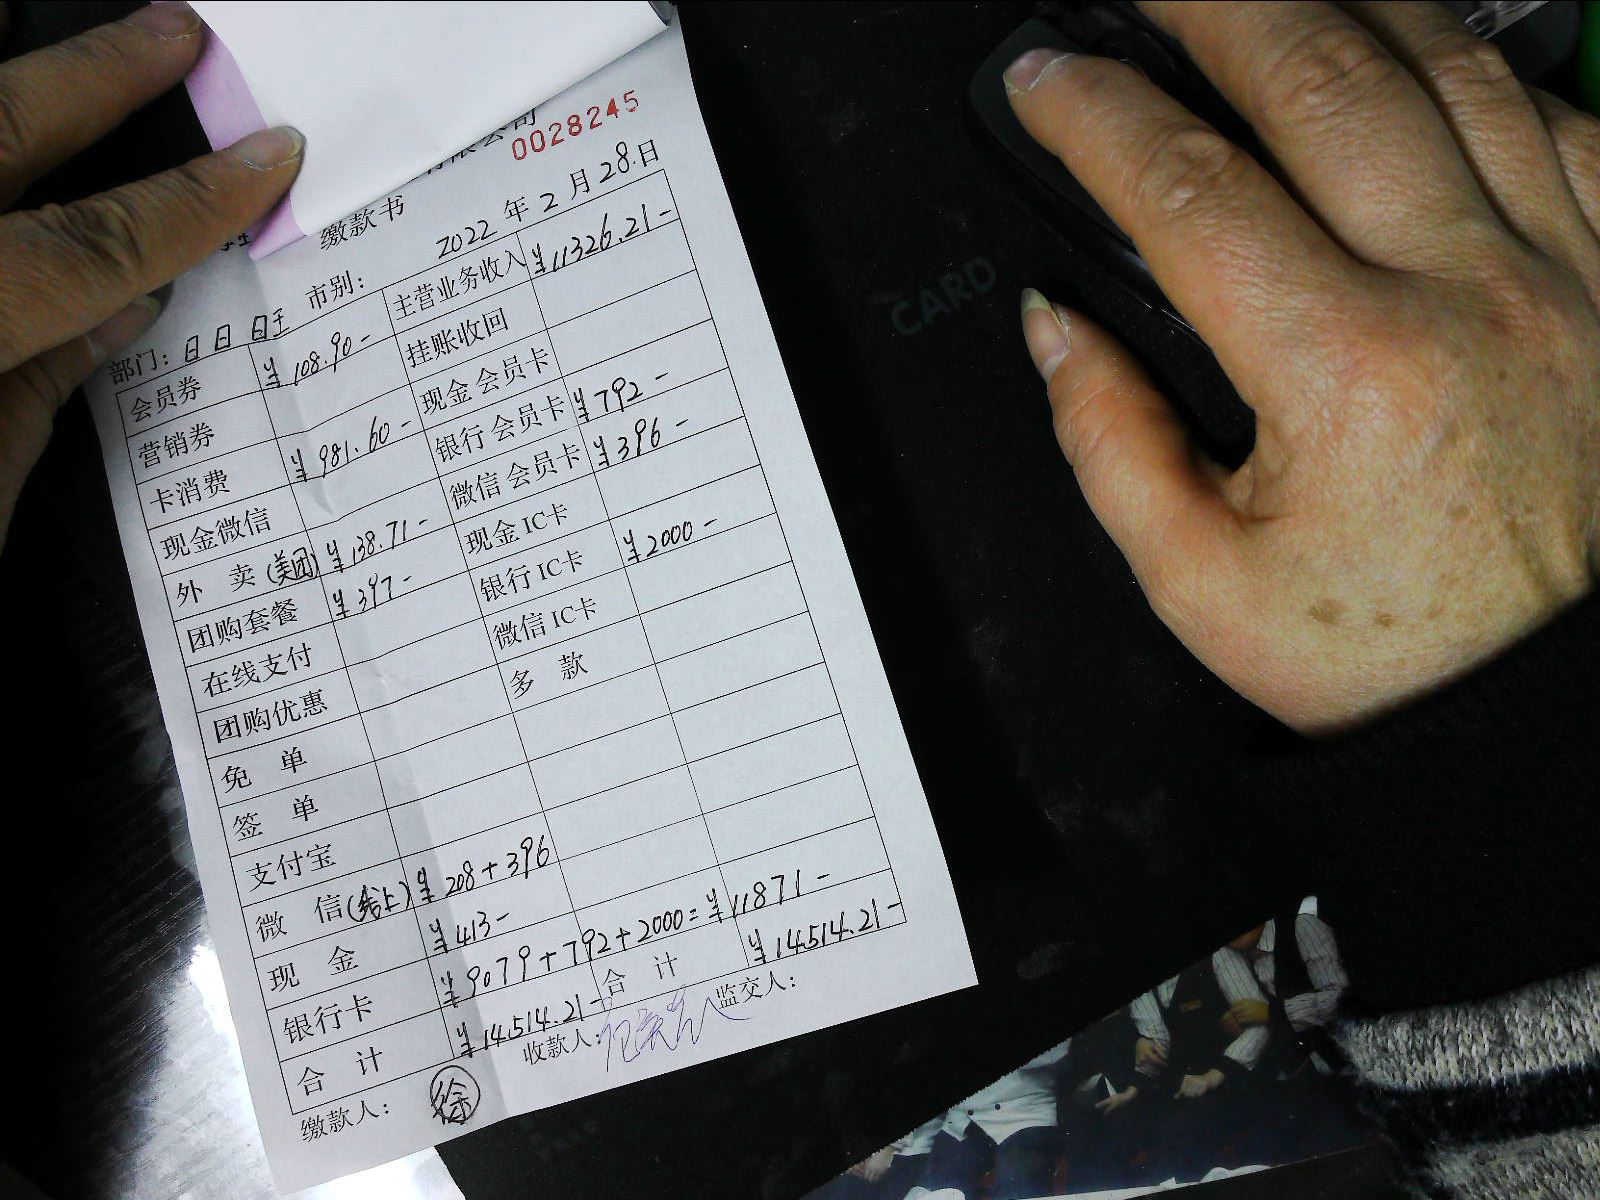 有限公司
0028245
缴款书
2022 年 2 月 28 日
部门：日日日 市别：
会员券 ¥108.90- 主营业务收入 ¥11326.21-
营销券 挂账收回
卡消费 ¥981.60- 现金会员卡
现金微信 银行会员卡 ¥792-
外 卖(美团) ¥138.71- 微信会员卡 ¥396-
团购套餐 ¥397- 现金IC卡
在线支付 银行IC卡 ¥2000-
团购优惠 微信IC卡
免 单 多 款
签 单
支付宝
微 信(线上) ¥208+396
现 金 ¥413-
银行卡 ¥9079+792+2000=¥11871-
合 计 ¥14514.21- 合 计 ¥14514.21-
缴款人： 徐 收款人： 监交人：
CARD